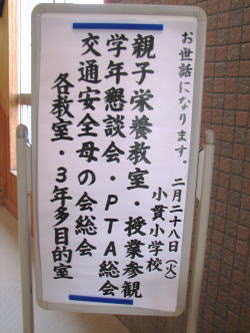 お世話になります。二月二十八日（火）
小貫小学校
親子栄養教室・授業参観
学年懇談会・PTA総会
交通安全母の会総会
各教室・3年多目的室